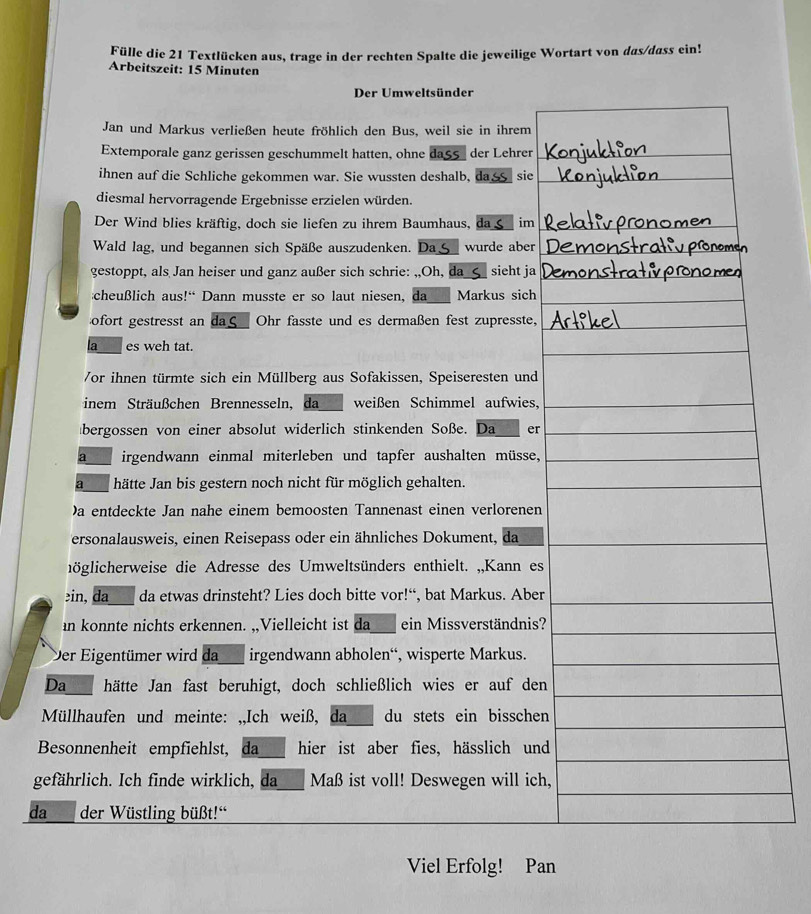 Fülle die 21 Textlücken aus, trage in der rechten Spalte die jeweilige Wortart von das/dass ein!
Arbeitszeit: 15 Minuten
Der Umweltsünder
Jan und Markus verließen heute fröhlich den Bus, weil sie in ihrem
Extemporale ganz gerissen geschummelt hatten, ohne dass der Lehrer Konjuktion
ihnen auf die Schliche gekommen war. Sie wussten deshalb, dass sie Konjuktion
diesmal hervorragende Ergebnisse erzielen würden.
Der Wind blies kräftig, doch sie liefen zu ihrem Baumhaus, das im Relativpronomen
Wald lag, und begannen sich Späße auszudenken. Das wurde aber Demonstrativpronomen
gestoppt, als Jan heiser und ganz außer sich schrie: „Oh, das sieht ja Demonstrativpronomen
cheußlich aus!“ Dann musste er so laut niesen, da___ Markus sich
ofort gestresst an das Ohr fasste und es dermaßen fest zupresste, Artikel
a___ es weh tat.
or ihnen türmte sich ein Müllberg aus Sofakissen, Speiseresten und
inem Sträußchen Brennesseln, da___ weißen Schimmel aufwies,
bergossen von einer absolut widerlich stinkenden Soße. Da___ er
a___ irgendwann einmal miterleben und tapfer aushalten müsse,
a___ hätte Jan bis gestern noch nicht für möglich gehalten.
Da entdeckte Jan nahe einem bemoosten Tannenast einen verlorenen
ersonalausweis, einen Reisepass oder ein ähnliches Dokument, da___
öglicherweise die Adresse des Umweltsünders enthielt. „Kann es
ein, da___ da etwas drinsteht? Lies doch bitte vor!“, bat Markus. Aber
an konnte nichts erkennen. „Vielleicht ist da___ ein Missverständnis?
Der Eigentümer wird da___ irgendwann abholen“, wisperte Markus.
Da___ hätte Jan fast beruhigt, doch schließlich wies er auf den
Müllhaufen und meinte: „Ich weiß, da___ du stets ein bisschen
Besonnenheit empfiehlst, da___ hier ist aber fies, hässlich und
gefährlich. Ich finde wirklich, da___ Maß ist voll! Deswegen will ich,
da___ der Wüstling büßt!“
Viel Erfolg! Pan